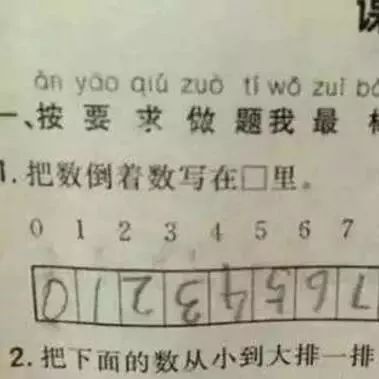 课
àn yāo qiú zuò tí wǒ zuì bà
一、按 要 求 做 题我 最 棒
1. 把数倒着数写在□里。
0 1 2 3 4 5 6 7
0 1 2 3 4 5 6 7
2. 把下面的数从小到大排一排